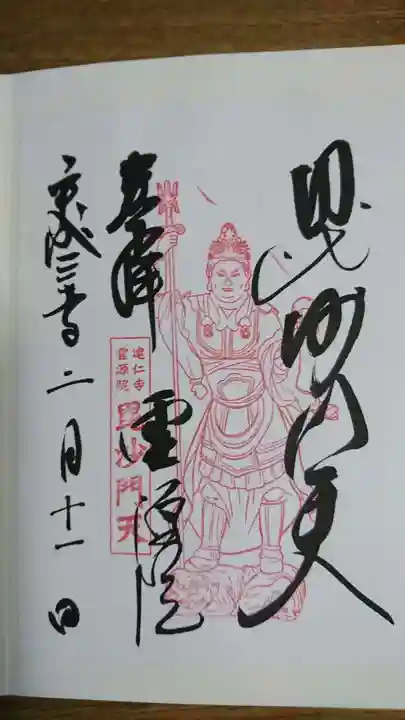 毘沙門天
奉拝 霊源院
建仁寺
霊源院
毘沙門天
二月十一日